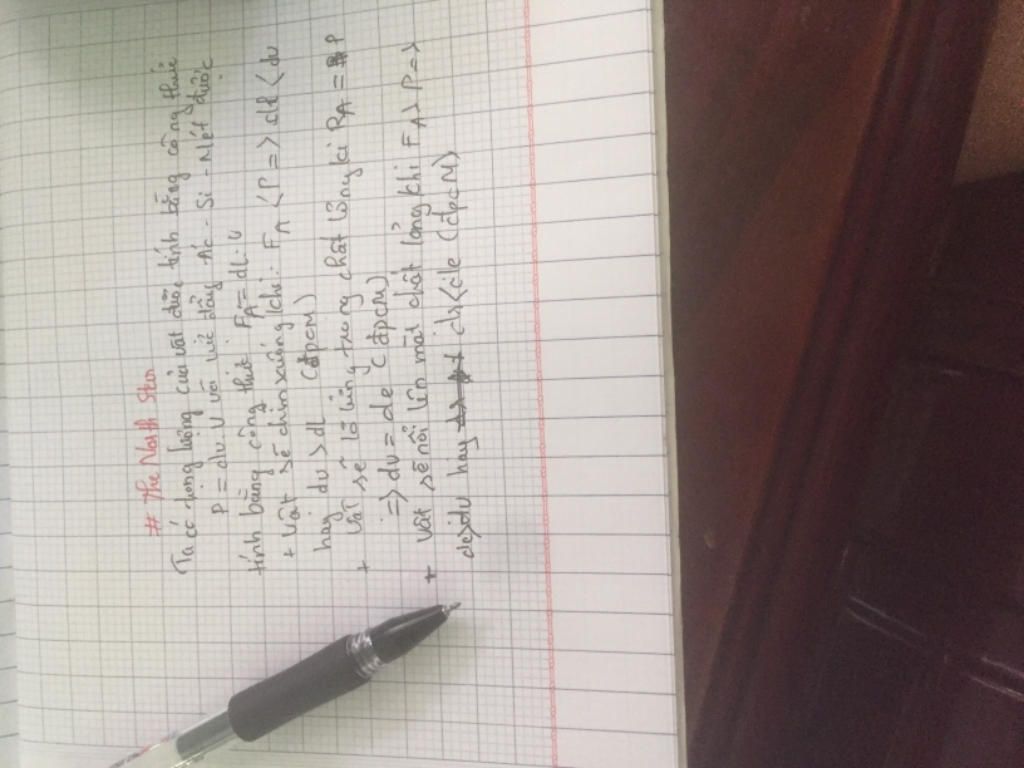 # The North Star
Ta có trọng lượng của vật được tính bằng công thức
P = dv. V với lực đẩy Ác - Si - Mét được
tính bằng công thức FA = dl. V
+ Vật sẽ chìm xuống khi: FA < P => dl < dv
hay dv > dl (đpcM)
+ Vật sẽ lơ lửng trong chất lỏng khi FA = P
=> dv = dl (đpcM)
+ Vật sẽ nổi lên mặt chất lỏng khi FA > P =>
dl > dv hay dv < dl (đpcM)